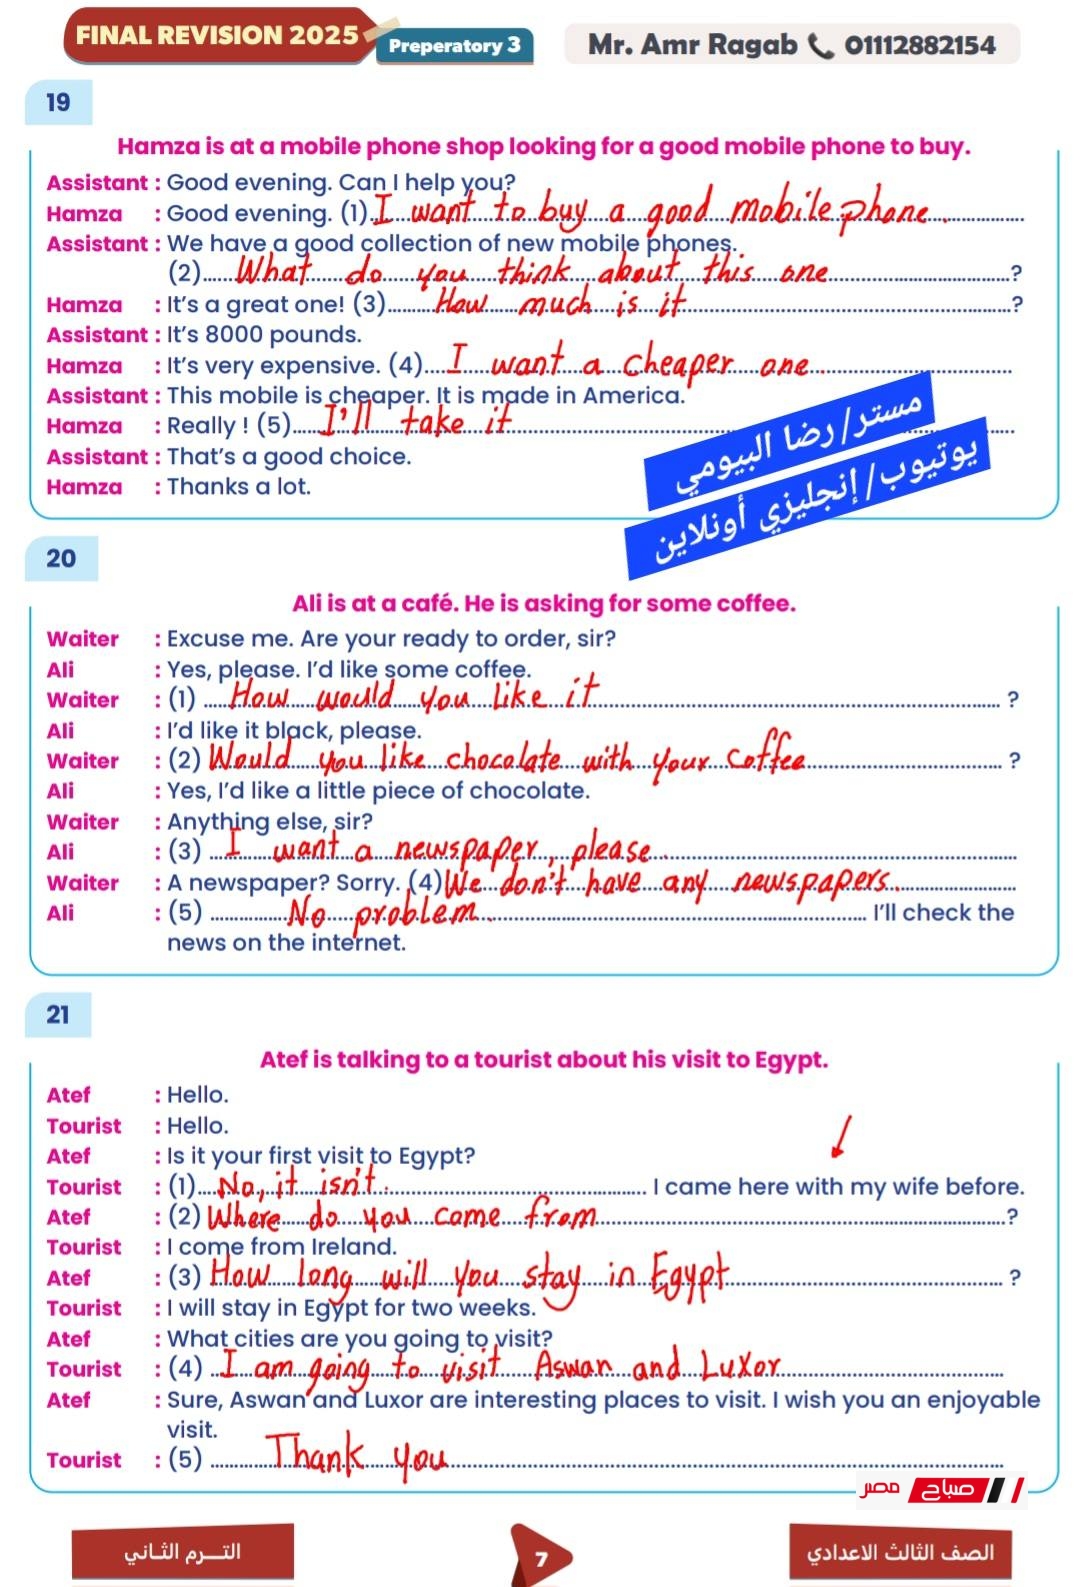 FINAL REVISION 2025
Preperatory 3
Mr. Amr Ragab 01112882154
19
Hamza is at a mobile phone shop looking for a good mobile phone to buy.
Assistant : Good evening. Can I help you?
Hamza : Good evening. (1) I want to buy a good mobile phone.
Assistant : We have a good collection of new mobile phones.
(2) What do you think about this one ?
Hamza : It's a great one! (3) How much is it ?
Assistant : It's 8000 pounds.
Hamza : It's very expensive. (4) I want a cheaper one.
Assistant : This mobile is cheaper. It is made in America.
Hamza : Really ! (5) I'll take it
Assistant : That's a good choice.
Hamza : Thanks a lot.
مستر/ رضا البيومي
يوتيوب/ إنجليزي أونلاين
20
Ali is at a café. He is asking for some coffee.
Waiter : Excuse me. Are your ready to order, sir?
Ali : Yes, please. I'd like some coffee.
Waiter : (1) How would you like it ?
Ali : I'd like it black, please.
Waiter : (2) Would you like chocolate with your coffee ?
Ali : Yes, I'd like a little piece of chocolate.
Waiter : Anything else, sir?
Ali : (3) I want a newspaper, please.
Waiter : A newspaper? Sorry. (4) We don't have any newspapers.
Ali : (5) No problem. I'll check the
news on the internet.
21
Atef is talking to a tourist about his visit to Egypt.
Atef : Hello.
Tourist : Hello.
Atef : Is it your first visit to Egypt?
Tourist : (1) No, it isn't. I came here with my wife before.
Atef : (2) Where do you come from ?
Tourist : I come from Ireland.
Atef : (3) How long will you stay in Egypt ?
Tourist : I will stay in Egypt for two weeks.
Atef : What cities are you going to visit?
Tourist : (4) I am going to visit Aswan and Luxor
Atef : Sure, Aswan and Luxor are interesting places to visit. I wish you an enjoyable
visit.
Tourist : (5) Thank you
صباح مصر
الصف الثالث الاعدادي
7
التـــرم الثـاني